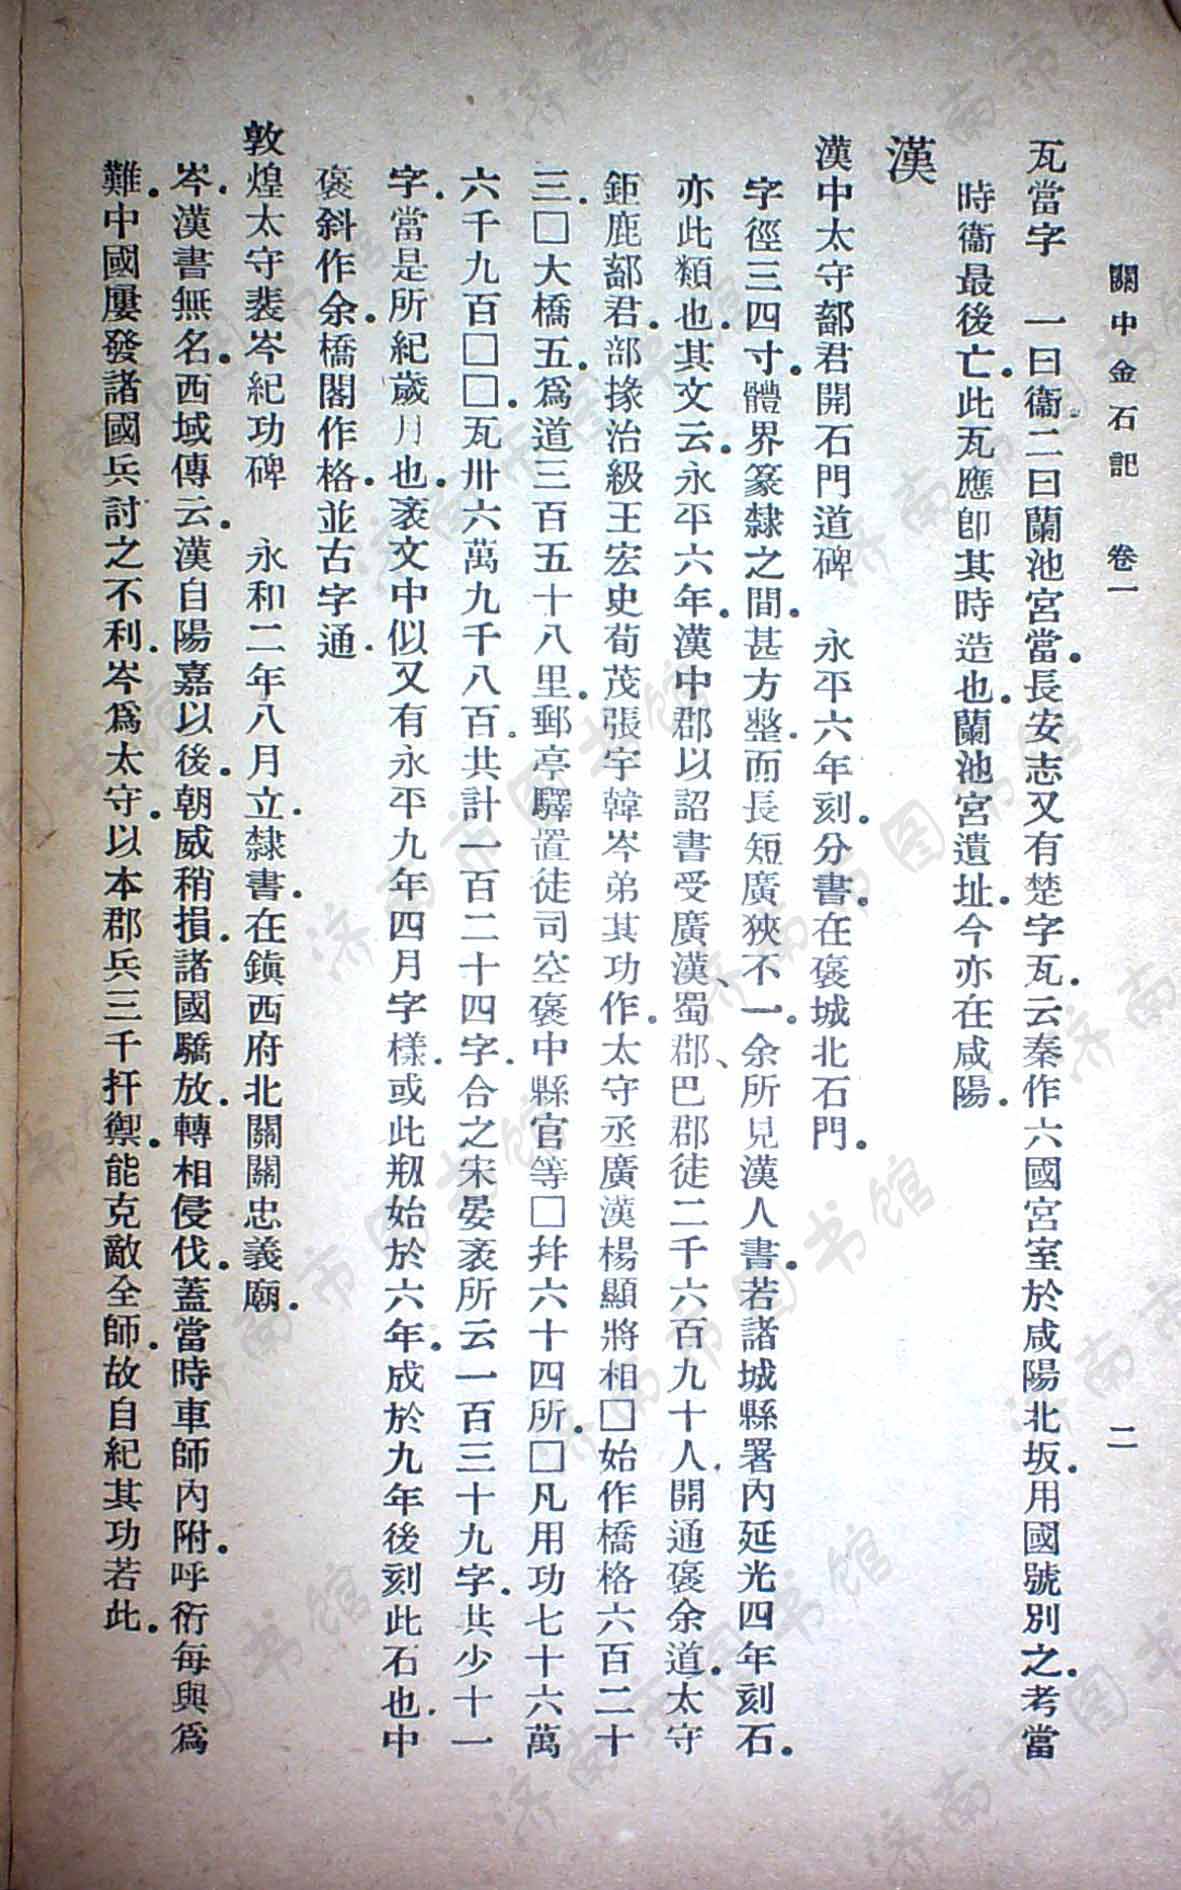 關中金石記 卷一 二
瓦當字 一曰衞二曰蘭池宮當。長安志又有楚字瓦。云秦作六國宮室於咸陽北坂。用國號別之。考當
時衞最後亡。此瓦應卽其時造也。蘭池宮遺址。今亦在咸陽。
漢
漢中太守鄐君開石門道碑 永平六年刻。分書。在褒城北石門。
字徑三四寸。體界篆隸之間。甚方整。而長短廣狹不一。余所見漢人書。若諸城縣署內延光四年刻石。
亦此類也。其文云。永平六年。漢中郡以詔書受廣漢、蜀郡、巴郡徒二千六百九十人。開通褒余道。太守
鉅鹿鄐君。部掾治級王宏史荀茂張宇韓岑弟其功作。太守丞廣漢楊顯將相□始作橋格六百二十
三。□大橋五。爲道三百五十八里。郵亭驛置徒司空褒中縣官等□幷六十四所。□凡用功七十六萬
六千九百□□。瓦卅六萬九千八百。共計一百二十四字。合之宋晏袤所云一百三十九字。共少十一
字。當是所紀歲月也。袤文中似又有永平九年四月字樣。或此剏始於六年。成於九年後刻此石也。中
褒斜作余。橋閣作格。並古字通。
敦煌太守裴岑紀功碑 永和二年八月立。隸書。在鎭西府北關關忠義廟。
岑。漢書無名。西域傳云。漢自陽嘉以後。朝威稍損。諸國驕放。轉相侵伐。蓋當時車師內附。呼衍每與爲
難。中國屢發諸國兵討之不利。岑爲太守。以本郡兵三千扞禦。能克敵全師。故自紀其功若此。